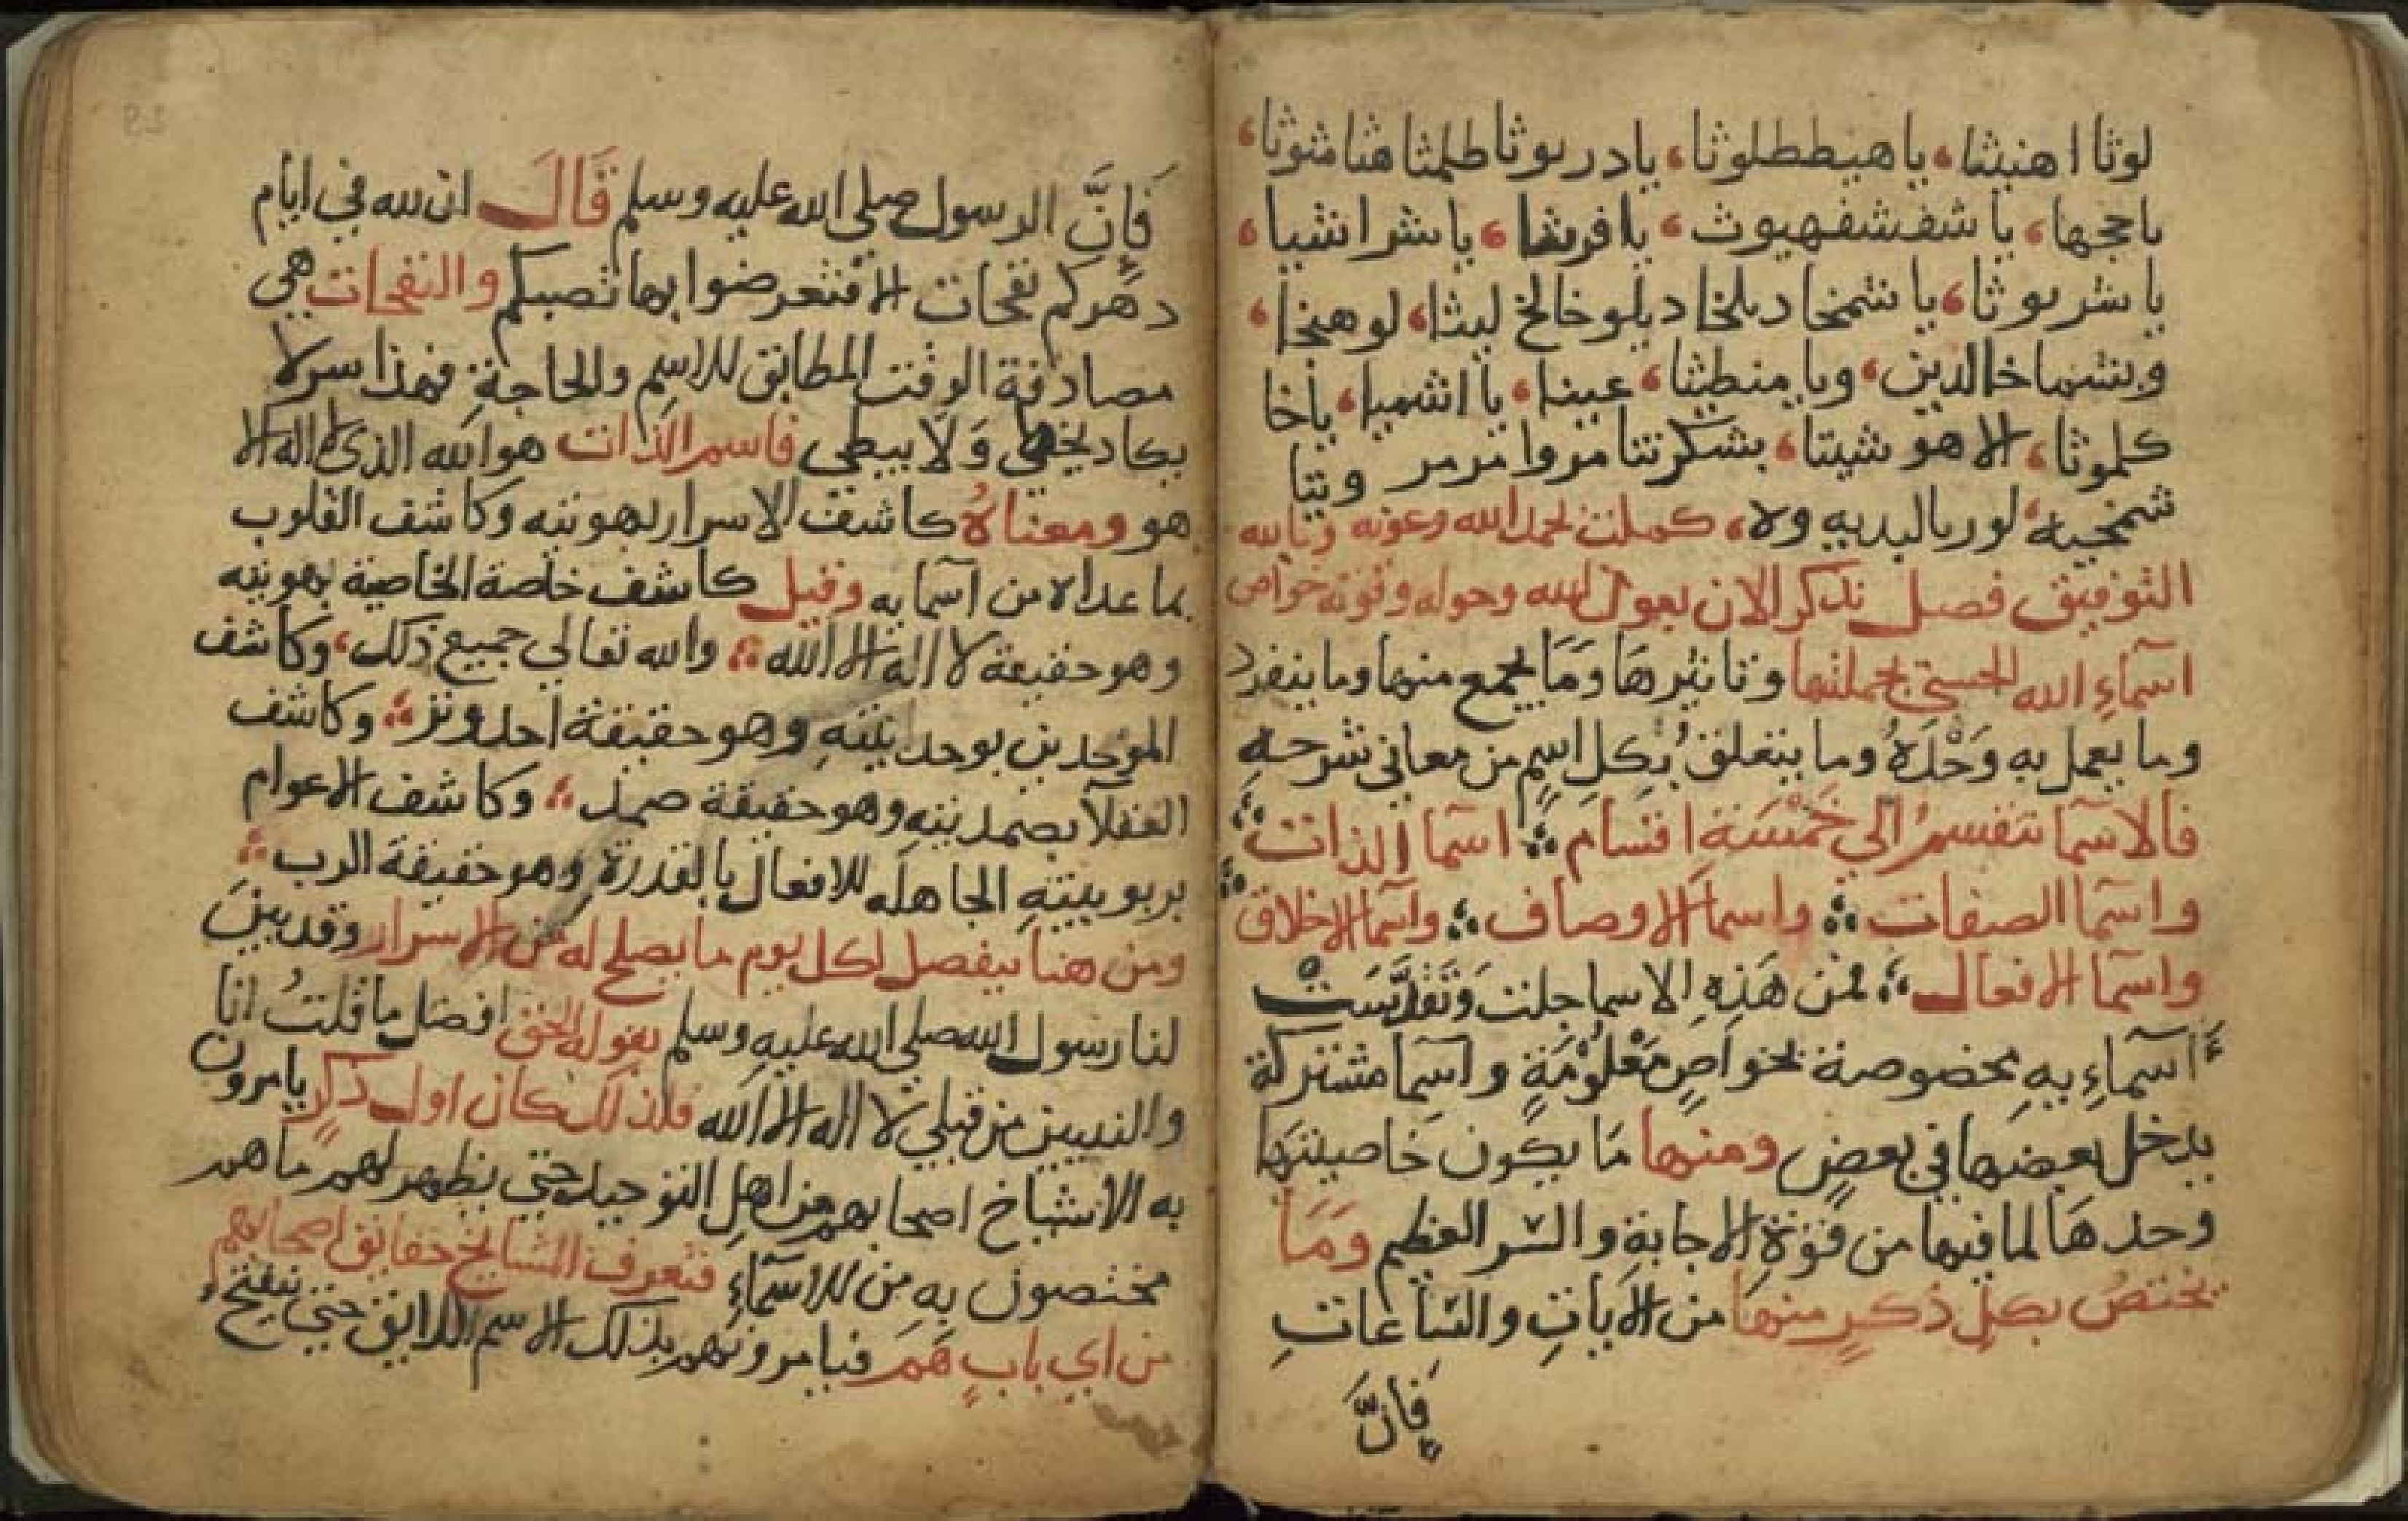 لوثا اهنيثا، يا هيططلوثا، يا دريوثا طلمثا هثا مثوثا،
يا ججها، يا شفشفهيوث، يا فرثها، يا بثرا نثيا،
يا بثريوثا، يا نتمخا دبلخا دبلو خالخ ليثا، لو هيخا،
وبنثما خالدين، ويا منطيثا، عيثا، يا اشهيا، ياخا
كلموثا، الا هو شيتا، بشكر نتا مروا مرمر وبتا
شمخيه، لوربا لبديه ولا، كملت بحمد الله وعونه وبالله
التوفيق فصل نذكر الان بعون الله وحوله وقوته خواص
اسماء الله الحسنى بجملتها وتاثيرها وما يجمع منها وما ينفرد
وما يعمل به وحده وما يتعلق بكل اسم من معاني شرحه
فالاسما تنقسم الي خمسة اقسام اسما الذات
واسما الصفات واسما الاوصاف واسما الاخلاق
واسما الافعال فمن هذه الاسما جلت وتقدست
اسماء به مخصوصة بخواص معلومة واسما مشتركة
يدخل بعضها في بعض ومنها ما يكون خاصيتها
وحدها لما فيها من قوة الاجابة والسر العظيم وما
يختص بكل ذكر منها من الايات والساعات
فان
فان الرسول صلي الله عليه وسلم قال ان لله في ايام
دهركم نفحات الا فتعرضوا بها تصبكم والنفحات هي
مصادفة الوقت المطابق للاسم والحاجة فهذا سر لا
يكاد يخطي ولا يبطي فاسم الذات هو الله الذي لا اله الا
هو ومعناه كاشف الاسرار بهويته وكاشف القلوب
بما عداه من اسمايه وقيل كاشف خاصة الخاصية بهويته
وهو حقيقة لا اله الا الله والله تعالي جميع ذلك، وكاشف
الموحدين بوحدانيته وهو حقيقة احد وتر وكاشف
العقلا بصمديته وهو حقيقة صمد وكاشف الاعوام
بربوبيته الجاهله للافعال بالقدرة وهو حقيقة الرب
ومن هنا يفصل لكل يوم ما يصلح له من الاسرار وقد بين
لنا رسول الله صلي الله عليه وسلم بقوله الحق افضل ما قلت انا
والنبيين من قبلي لا اله الا الله فلذلك كان اول ذكر يامرون
به الاشياخ اصحابهم من اهل التوحيد حتي يظهر لهم ما هم
مختصون به من الاسماء فتعرف المشايخ حقايق اصحابهم
من اي باب هم فيامرونهم بذلك الاسم اللايق حتي ينفتح